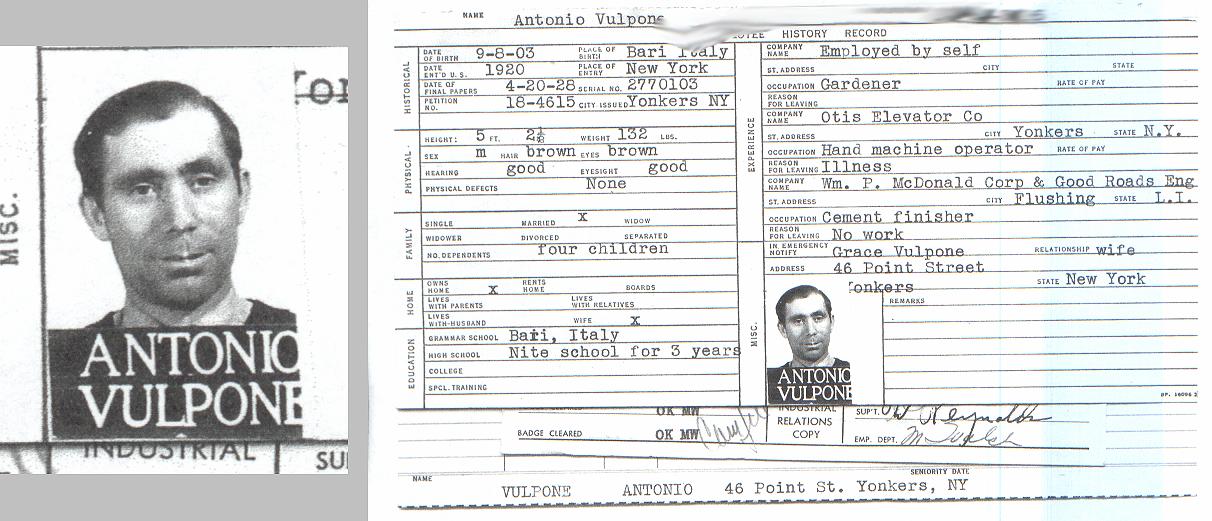 MISC.
ANTONIO
VULPONE
INDUSTRIAL
SU
NAME Antonio Vulpone
HISTORY RECORD
HISTORICAL
DATE OF BIRTH 9-8-03 PLACE OF BIRTH Bari Italy
DATE ENT'D U.S. 1920 PLACE OF ENTRY New York
DATE OF FINAL PAPERS 4-20-28 SERIAL NO. 2770103
PETITION NO. 18-4615 CITY ISSUED Yonkers NY
PHYSICAL
HEIGHT: 5 FT. 2½ WEIGHT 132 LBS.
SEX m HAIR brown EYES brown
HEARING good EYESIGHT good
PHYSICAL DEFECTS None
FAMILY
SINGLE MARRIED x WIDOW
WIDOWER DIVORCED SEPARATED
NO. DEPENDENTS four children
HOME
OWNS HOME x RENTS HOME BOARDS
LIVES WITH PARENTS LIVES WITH RELATIVES
LIVES WITH-HUSBAND WIFE x
EDUCATION
GRAMMAR SCHOOL Bari, Italy
HIGH SCHOOL Nite school for 3 years
COLLEGE
SPCL. TRAINING
EXPERIENCE
COMPANY NAME Employed by self
ST. ADDRESS CITY STATE
OCCUPATION Gardener RATE OF PAY
REASON FOR LEAVING
COMPANY NAME Otis Elevator Co
ST. ADDRESS CITY Yonkers STATE N.Y.
OCCUPATION Hand machine operator RATE OF PAY
REASON FOR LEAVING Illness
COMPANY NAME Wm. P. McDonald Corp & Good Roads Eng
ST. ADDRESS CITY Flushing STATE L.I.
OCCUPATION Cement finisher
REASON FOR LEAVING No work
IN EMERGENCY NOTIFY Grace Vulpone RELATIONSHIP wife
ADDRESS 46 Point Street
Yonkers STATE New York
MISC.
REMARKS
ANTONIO
VULPONE
BADGE CLEARED OK MW
OK MW
INDUSTRIAL
RELATIONS
COPY
SUP'T.
EMP. DEPT.
NAME SENIORITY DATE
VULPONE ANTONIO 46 Point St. Yonkers, NY